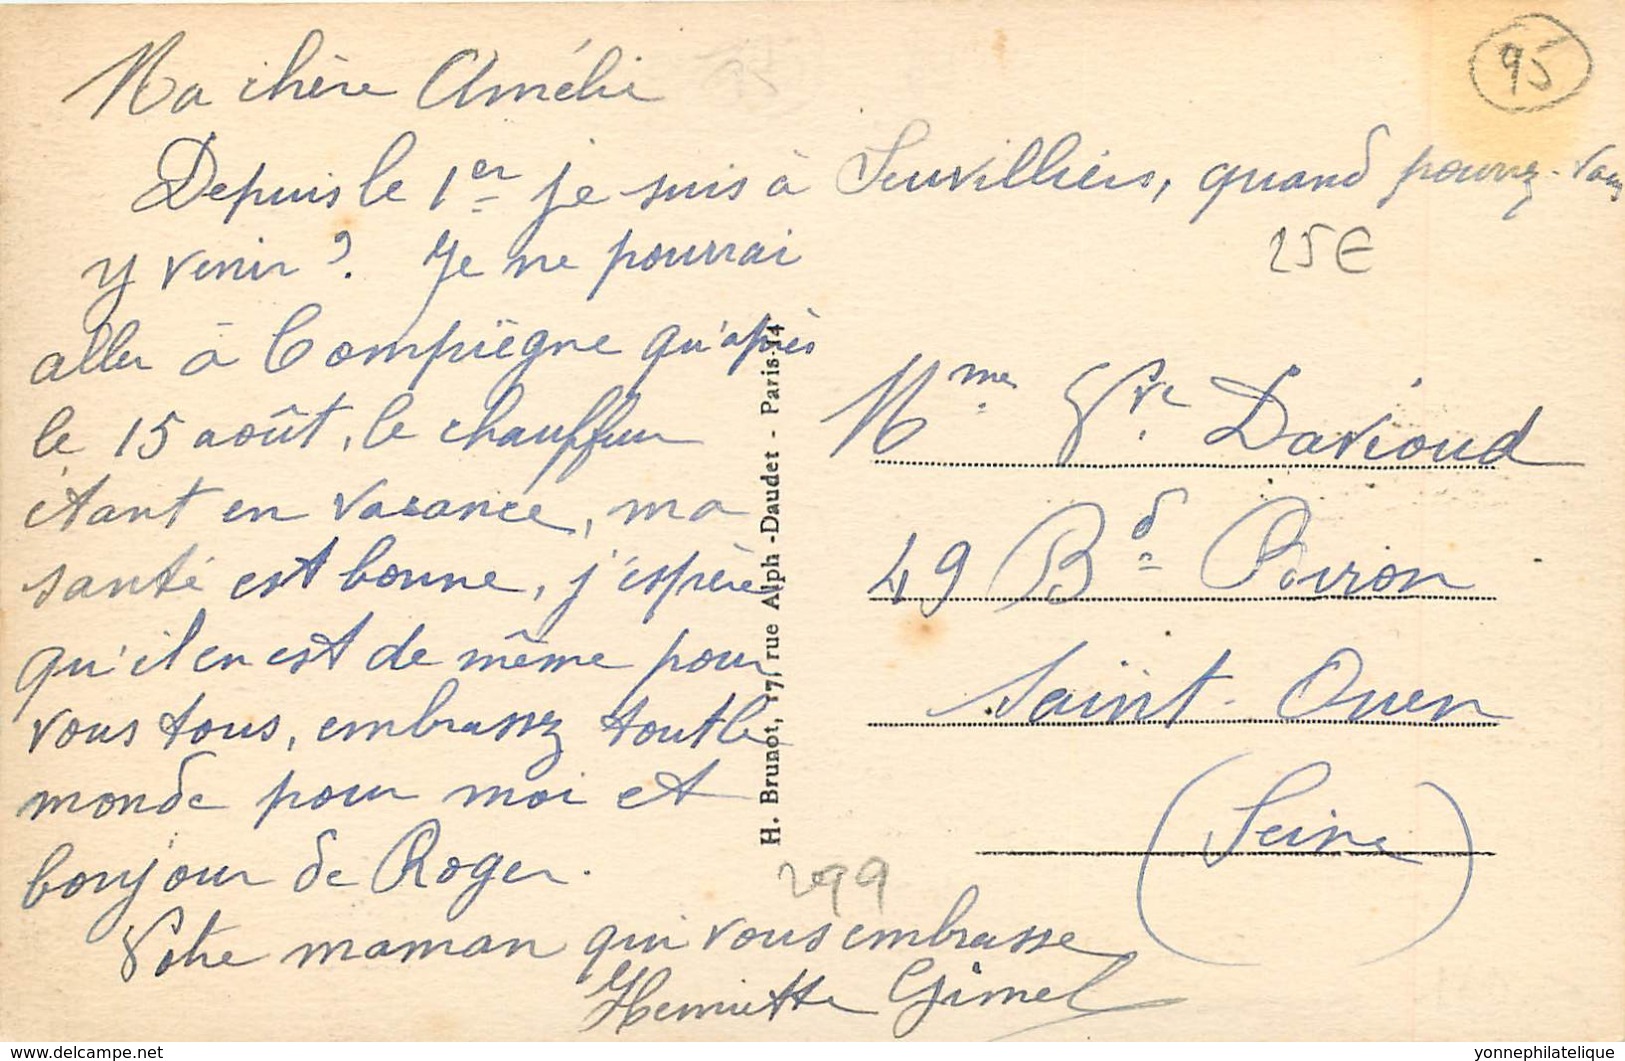 95
Ma chère Amélie
Depuis le 1er je suis à Seuvilliers, quand pourrez-vous
y venir ? Je ne pourrai
25€
aller à Compiègne qu'après
le 15 août, le chauffeur
étant en vacance, ma
santé est bonne, j'espère
qu'il en est de même pour
vous tous, embrassez tout le
monde pour moi et
bonjour de Roger.
Votre maman qui vous embrasse
Henriette Gimel
H. Brunot, 17, rue Alph-Daudet - Paris-14
299
Mme Vve Davioud
49 Bd Biron
Saint-Ouen
(Seine)
https://www.delcampe.net
yonnephilatelique